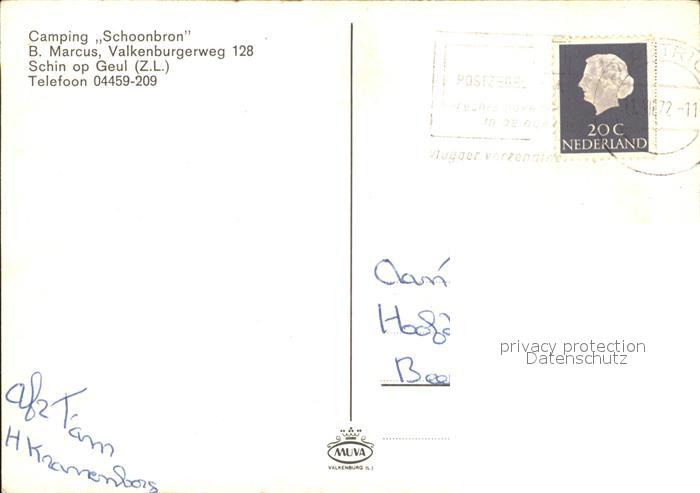 Camping „Schoonbron"
B. Marcus, Valkenburgerweg 128
Schin op Geul (Z.L.)
Telefoon 04459-209
POSTZEGEL
20 C
NEDERLAND
72-11
Aan
privacy protection
Datenschutz
Afz Fam
H Kranenborg
MUVA
VALKENBURG (L.)